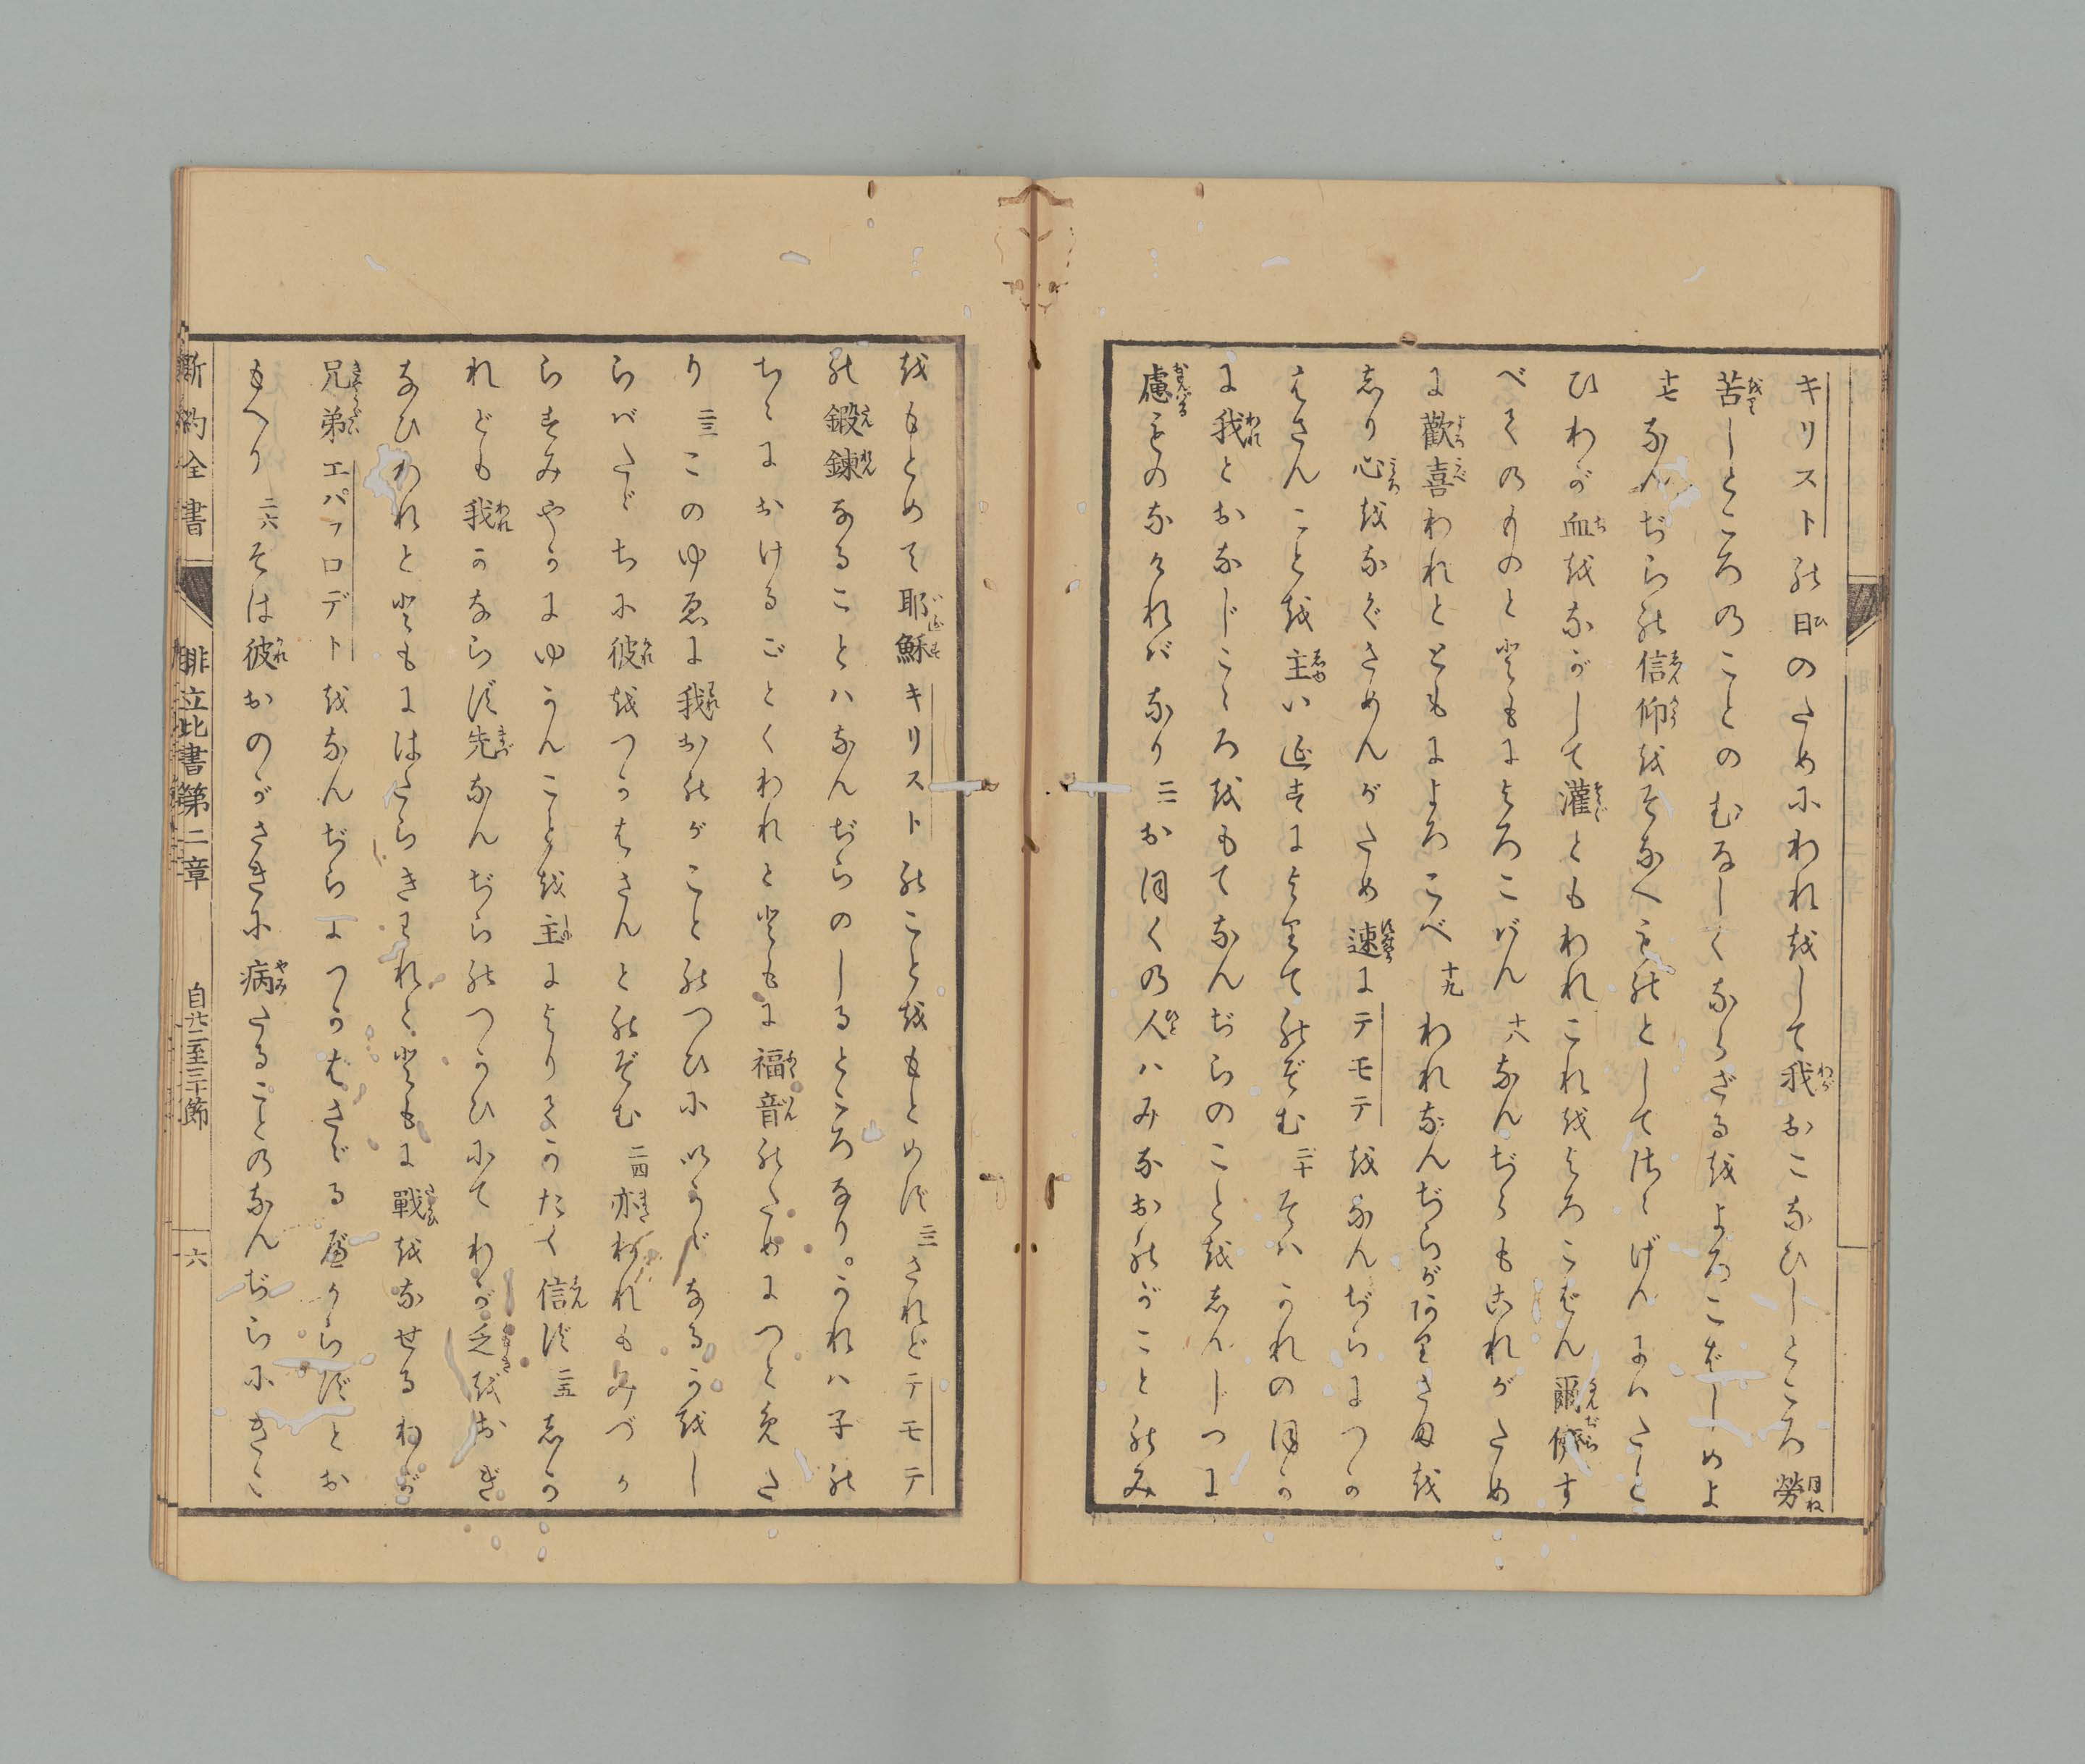 キリストの日のためにわれをして我おこなひしところ勞
苦しところのことのむなしくならざるをよろこばしめよ
十七なんぢらの信仰をそなへものとしてさゝげんにハたと
ひわが血をながして灌ともわれこれをよろこばん爾儕す
べてのものとともによろこばん十八なんぢらもこれがため
に歡喜われとともによろこべ十九われなんぢらがありさまを
しり心をなぐさめんがため速にテモテをなんぢらにつか
はさんことを主いエスによりてのぞむ二十そハかれのほか
に我とおなじこゝろをもてなんぢらのことをしんじつに
慮ものなけれバなり二一おほくの人ハみなおのがことのみ
をもとめて耶穌キリストのことをもとめず二二されどテモテ
の鍛鍊なることハなんぢらのしるところなり。かれハ子の
ちゝにおけるごとくわれとともに福音のためにつとめた
り二三このゆゑに我おのがことのつひにいかゞなるかをし
らバたゞちに彼をつかはさんとのぞむ二四亦われもみづか
らすみやかにゆかんことを主によりてかたく信ず二五しか
れども我かならず先なんぢらのつかひにてわが乏をおぎ
なひわれとともにはたらきわれとともに戰をなせるわが
兄弟エパフロデトをなんぢらにつかはさゞるべからずとお
もへり二六そは彼おのがさきに病たることのなんぢらにきこ
新約全書 腓立比書第二章 自廿二至三十節 六